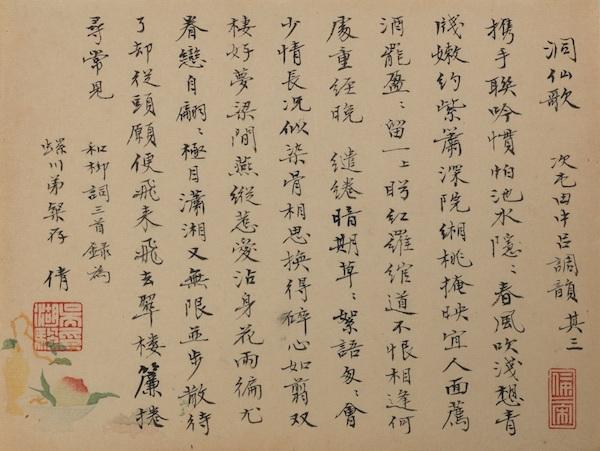 洞仙歌 次屯田中吕調韻 其三
携手聯吟慣怕池水隱〻春風吹淺想青
牋嫩約紫簫深院緗桃掩映宜人面薦
酒罷盈〻留一上眄紅羅綰道不恨相逢何
處重經晚 繾綣暗期草〻絮語匆〻會
少情長况似染骨相思換得碎心如翦双
棲好夢梁間燕縱惹愛沾身花雨徧尤
眷戀自翩〻極目瀟湘又無限並步散待
了却從頭願便飛来飛去翠樓簾捲
尋常見
和柳詞三首録為
螺川弟粲存 倩
倩庵